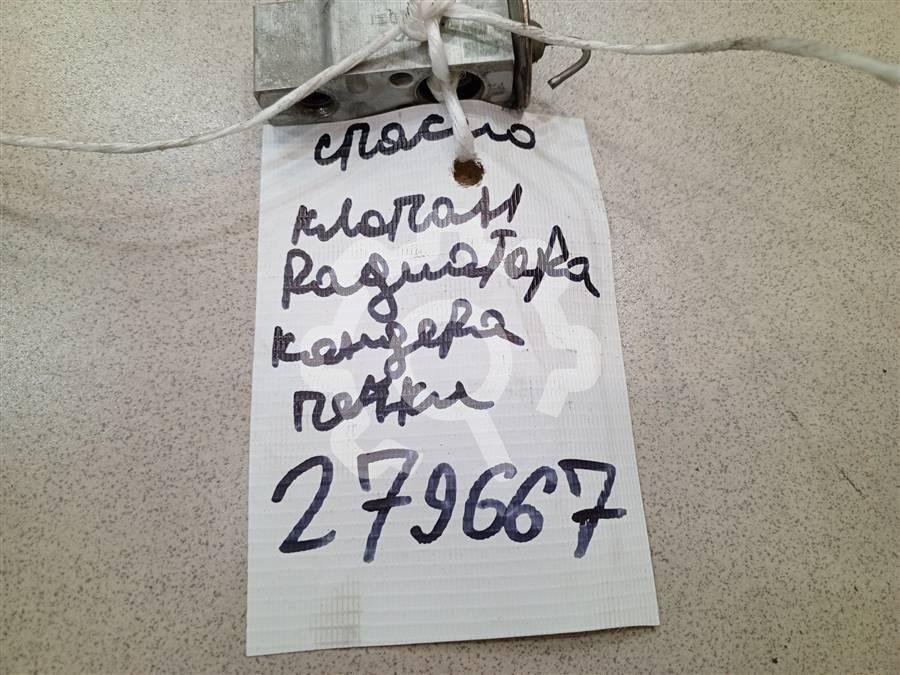 спасио
клапан
Радиатора
кандера
печки
279667